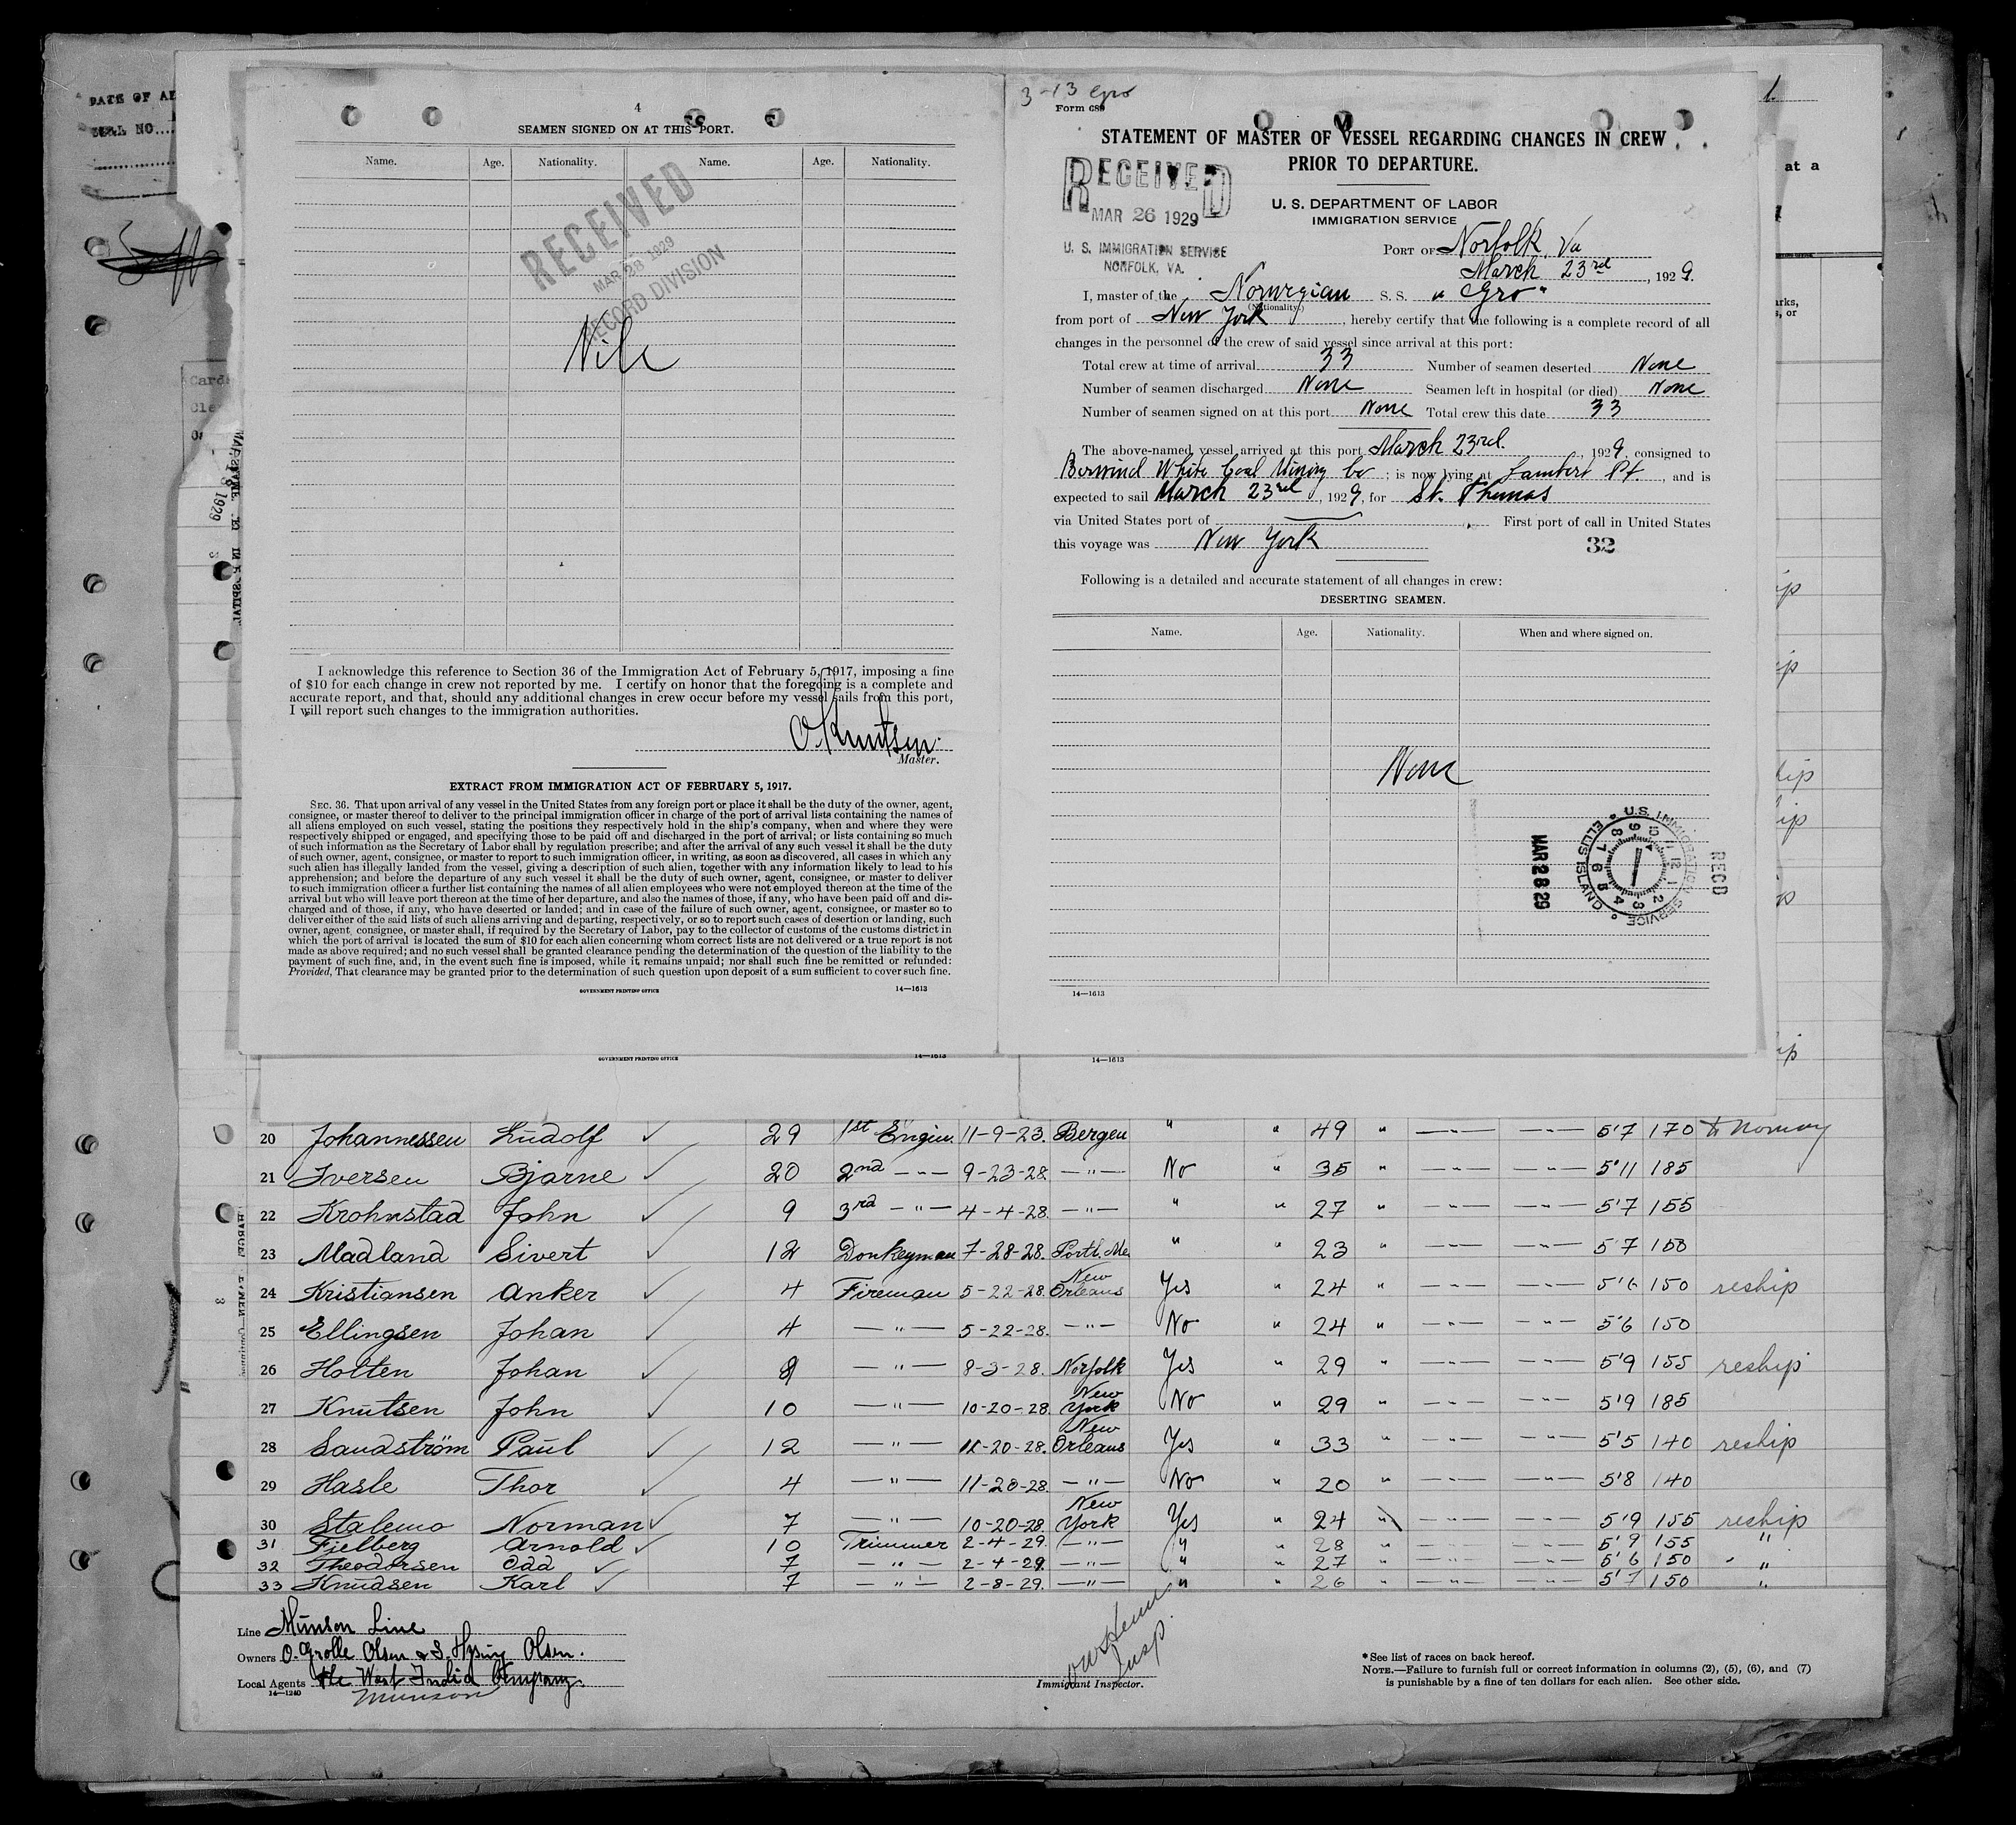 DATE OF
4
SEAMEN SIGNED ON AT THIS PORT.
Name. Age. Nationality. Name. Age. Nationality.
RECEIVED
MAR 28 1929
RECORD DIVISION
Nil
I acknowledge this reference to Section 36 of the Immigration Act of February 5, 1917, imposing a fine
of $10 for each change in crew not reported by me. I certify on honor that the foregoing is a complete and
accurate report, and that, should any additional changes in crew occur before my vessel sails from this port,
I will report such changes to the immigration authorities.
O. Knutsen
Master.
EXTRACT FROM IMMIGRATION ACT OF FEBRUARY 5, 1917.
SEC. 36. That upon arrival of any vessel in the United States from any foreign port or place it shall be the duty of the owner, agent,
consignee, or master thereof to deliver to the principal immigration officer in charge of the port of arrival lists containing the names of
all aliens employed on such vessel, stating the positions they respectively hold in the ship's company, when and where they were
respectively shipped or engaged, and specifying those to be paid off and discharged in the port of arrival; or lists containing so much
of such information as the Secretary of Labor shall by regulation prescribe; and after the arrival of any such vessel it shall be the duty
of such owner, agent, consignee, or master to report to such immigration officer, in writing, as soon as discovered, all cases in which any
such alien has illegally landed from the vessel, giving a description of such alien, together with any information likely to lead to his
apprehension; and before the departure of any such vessel it shall be the duty of such owner, agent, consignee, or master to deliver
to such immigration officer a further list containing the names of all alien employees who were not employed thereon at the time of the
arrival but who will leave port thereon at the time of her departure, and also the names of those, if any, who have been paid off and dis-
charged and of those, if any, who have deserted or landed; and in case of the failure of such owner, agent, consignee, or master so to
deliver either of the said lists of such aliens arriving and departing, respectively, or so to report such cases of desertion or landing, such
owner, agent, consignee, or master shall, if required by the Secretary of Labor, pay to the collector of customs of the customs district in
which the port of arrival is located the sum of $10 for each alien concerning whom correct lists are not delivered or a true report is not
made as above required; and no such vessel shall be granted clearance pending the determination of the question of the liability to the
payment of such fine, and, in the event such fine is imposed, while it remains unpaid; nor shall such fine be remitted or refunded:
Provided, That clearance may be granted prior to the determination of such question upon deposit of a sum sufficient to cover such fine.
GOVERNMENT PRINTING OFFICE 14—1613
3-13 Gro
Form 689
STATEMENT OF MASTER OF VESSEL REGARDING CHANGES IN CREW
PRIOR TO DEPARTURE.
RECEIVED
MAR 26 1929
U. S. IMMIGRATION SERVICE
NORFOLK, VA.
U. S. DEPARTMENT OF LABOR
IMMIGRATION SERVICE
PORT OF Norfolk, Va
March 23rd, 1929.
I, master of the Norwegian S. S. "Gro"
(Nationality.)
from port of New York, hereby certify that the following is a complete record of all
changes in the personnel of the crew of said vessel since arrival at this port:
Total crew at time of arrival 33 Number of seamen deserted None
Number of seamen discharged None Seamen left in hospital (or died) None
Number of seamen signed on at this port None Total crew this date 33
The above-named vessel arrived at this port March 23rd., 1929, consigned to
Berwind White Coal Mining Co; is now lying at Lambert Pt, and is
expected to sail March 23rd, 1929, for St. Thomas
via United States port of — First port of call in United States
this voyage was New York
32
Following is a detailed and accurate statement of all changes in crew:
DESERTING SEAMEN.
Name. Age. Nationality. When and where signed on.
None
REC'D
U.S. IMMIGRATION SERVICE
ELLIS ISLAND
MAR 28 29
14—1613
GOVERNMENT PRINTING OFFICE 14—1613 14—1613
20 Johannessen Ludolf ✓ 29 1st Engin. 11-9-23. Bergen " " 49 " —"— —"— 5'7 170 to Norway
21 Iversen Bjarne ✓ 20 2nd —"— 9-23-28 —"— No " 35 " —"— —"— 5'11 185
22 Krohnstad John ✓ 9 3rd —"— 4-4-28. —"— " " 27 " —"— —"— 5'7 155
23 Madland Sivert ✓ 12 Donkeyman 7-28-28. Portl. Me " " 23 " —"— —"— 5'7 150
24 Kristiansen Anker ✓ 4 Fireman 5-22-28. New Orleans Yes " 24 " —"— —"— 5'6 150 reship
25 Ellingsen Johan ✓ 4 —"— 5-22-28. —"— No " 24 " —"— —"— 5'6 150
26 Holten Johan ✓ 8 —"— 8-3-28. Norfolk Yes " 29 " —"— —"— 5'9 155 reship
27 Knutsen John ✓ 10 —"— 10-20-28. New York No " 29 " —"— —"— 5'9 185
28 Sandström Paul ✓ 12 —"— 11-20-28. New Orleans Yes " 33 " —"— —"— 5'5 140 reship
29 Hasle Thor ✓ 4 —"— 11-20-28. —"— No " 20 " —"— —"— 5'8 140
30 Stalemo Norman ✓ 7 —"— 10-20-28. New York Yes " 24 " —"— —"— 5'9 155 reship
31 Fjelberg Arnold ✓ 10 Trimmer 2-4-29. —"— " " 28 " —"— —"— 5'9 155 "
32 Theodorsen Odd ✓ 7 —"— 2-4-29. —"— " " 27 " —"— —"— 5'6 150 "
33 Knudsen Karl ✓ 7 —"— 2-8-29. —"— " " 26 " —"— —"— 5'7 150 "
Line Munson Line
Owners O. Grolle Olsen & S. Olsen.
Local Agents the West India Company.
14—1240 Munson
Insp.
Immigrant Inspector.
* See list of races on back hereof.
NOTE.—Failure to furnish full or correct information in columns (2), (5), (6), and (7)
is punishable by a fine of ten dollars for each alien. See other side.